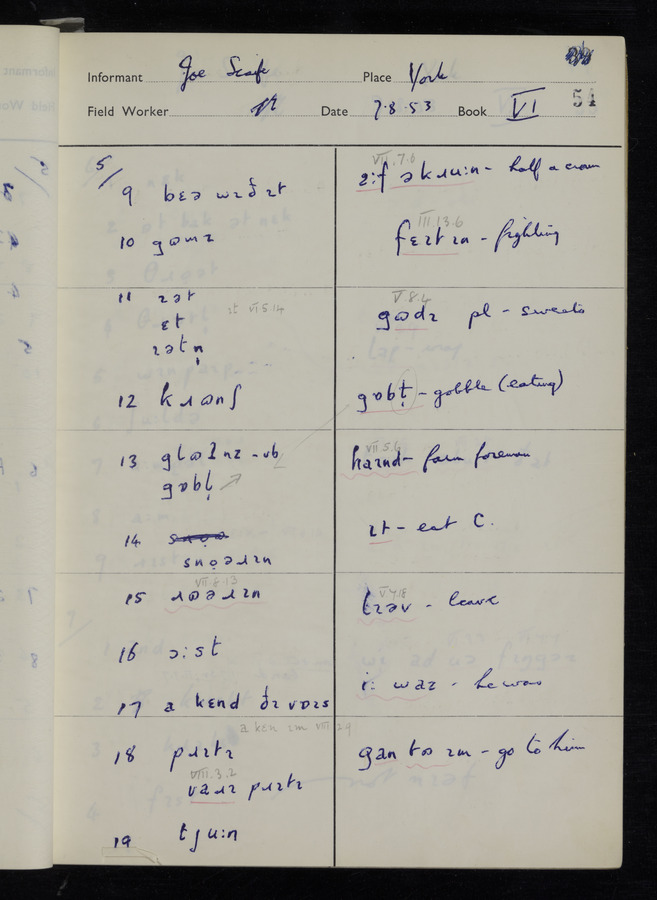 Informant Joe Scaife Place York
Field Worker Date 7.8.53 Book VI 54
5/
9 bɛə wɪð ɪt
10 gɷmz
11 ɪət
ɛt
ɪətn̩
ɪt VI.5.14
12 kɹɷnʃ
13 - vb
gɒbl̩
14
snɷ̞əɹɪn
VII.8.13
15 ɹɷəɹɪn
16 ɔ:st
17 a kɛnd ðɪ vɒɪs
a kɛn ɪm VIII.2.9
18 pɹɪtɪ
VIII.3.2
vaɹɪ pɹɪtɪ
19 tʃu:n
VII.7.6
əkɹu:n - half a crown
III.13.6
fɛɪtɪn - fighting
V.8.4
gɷdz pl - sweets
gɒbl̩ - gobble (eating)
VII.5.6
haɪnd - farm foreman
ɪt - eat C.
V.7.18
lɪəv - leave
i: waz - he was
gan tɷ ɪm - go to him